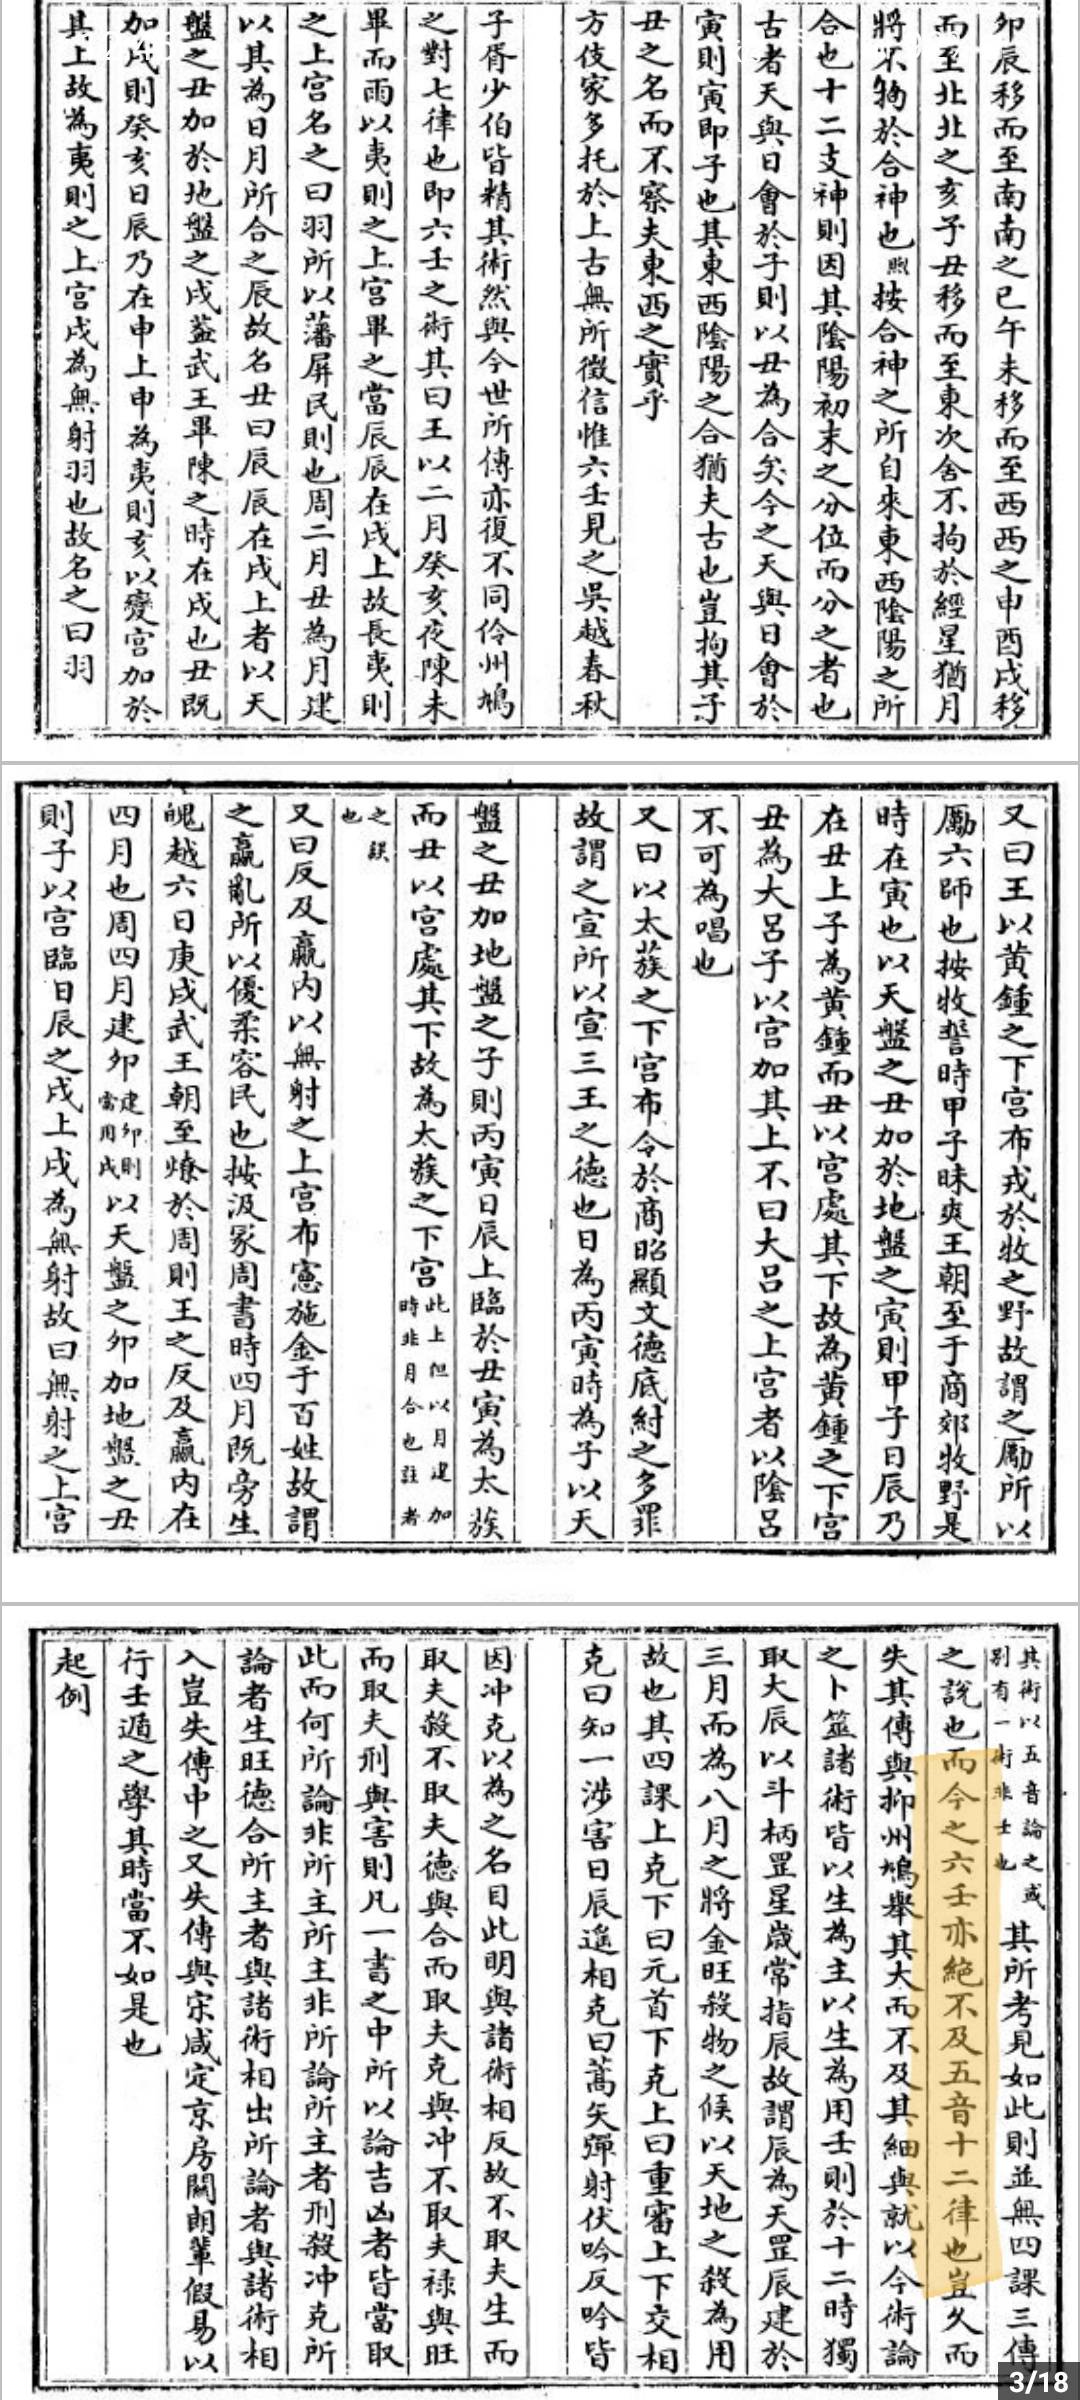 卯辰移而至南南之巳午未移而至西西之申酉戌移
而至北北之亥子丑移而至東次舍不拘於經星猶月
將不拘於合神也照按合神之所自來東西陰陽之所
合也十二支神則因其陰陽初末之分位而分之者也
古者天與日會於子則以丑為合矣今之天與日會於
寅則寅即子也其東西陰陽之合猶夫古也豈拘其子
丑之名而不察夫東西之實乎
方伎家多托於上古無所徵信惟六壬見之吳越春秋
子胥少伯皆精其術然與今世所傳亦復不同伶州鳩
之對七律也即六壬之術其曰王以二月癸亥夜陳未
畢而雨以夷則之上宮畢之當辰辰在戌上故長夷則
之上宮名之曰羽所以藩屏民則也周二月丑為月建
以其為日月所合之辰故名丑曰辰辰在戌上者以天
盤之丑加於地盤之戌蓋武王畢陳之時在戌也丑既
加戌則癸亥日辰乃在申上申為夷則亥以變宮加於
其上故為夷則之上宮戌為無射羽也故名之曰羽
又曰王以黃鍾之下宮布戎於牧之野故謂之厲所以
厲六師也按牧誓時甲子昧爽王朝至于商郊牧野是
時在寅也以天盤之丑加於地盤之寅則甲子日辰乃
在丑上子為黃鍾而丑以宮處其下故為黃鍾之下宮
丑為大呂子以宮加其上不曰大呂之上宮者以陰呂
不可為唱也
又曰以太蔟之下宮布令於商昭顯文德底紂之多罪
故謂之宣所以宣三王之德也日為丙寅時為子以天
盤之丑加地盤之子則丙寅日辰上臨於丑寅為太蔟
而丑以宮處其下故為太蔟之下宮此上但以月建加時非月合也註者
之誤也
又曰反及嬴內以無射之上宮布憲施金于百姓故謂
之嬴亂所以優柔容民也按汲冢周書時四月既旁生
魄越六日庚戌武王朝至燎於周則王之反及嬴內在
四月也周四月建卯建卯則當用戌以天盤之卯加地盤之丑
則子以宮臨日辰之戌上戌為無射故曰無射之上宮
其術以五音論之或別有一術非壬也其所考見如此則並無四課三傳
之說也而今之六壬亦絕不及五音十二律也豈久而
失其傳與抑州鳩舉其大而不及其細與就以今術論
之卜筮諸術皆以生為主以生為用壬則於十二時獨
取大辰以斗柄罡星歲常指辰故謂辰為天罡辰建於
三月而為八月之將金旺殺物之候以天地之殺為用
故也其四課上克下曰元首下克上曰重審上下交相
克曰知一涉害日辰遙相克曰蒿矢彈射伏吟反吟皆
因冲克以為之名目此明與諸術相反故不取夫生而
取夫殺不取夫德與合而取夫克與冲不取夫祿與旺
而取夫刑與害則凡一書之中所以論吉凶者皆當取
此而何所論非所主所主非所論所主者刑殺冲克所
論者生旺德合所主者與諸術相出所論者與諸術相
入豈失傳中之又失傳與宋咸定京房關朗輩假易以
行壬遁之學其時當不如是也
起例
3/18